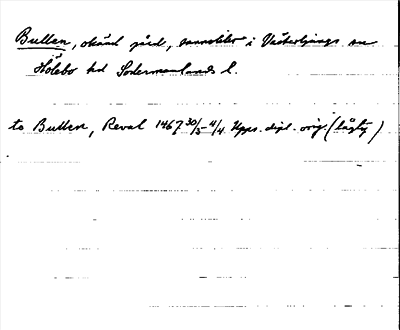 Bullen, okänd gård, sannolikt i Västerljungs sn
Hölebo hd Södermanlands l.
to Bullen, Reval 1467 30/5-4/4 Upps. dipl. orig. (lågty)